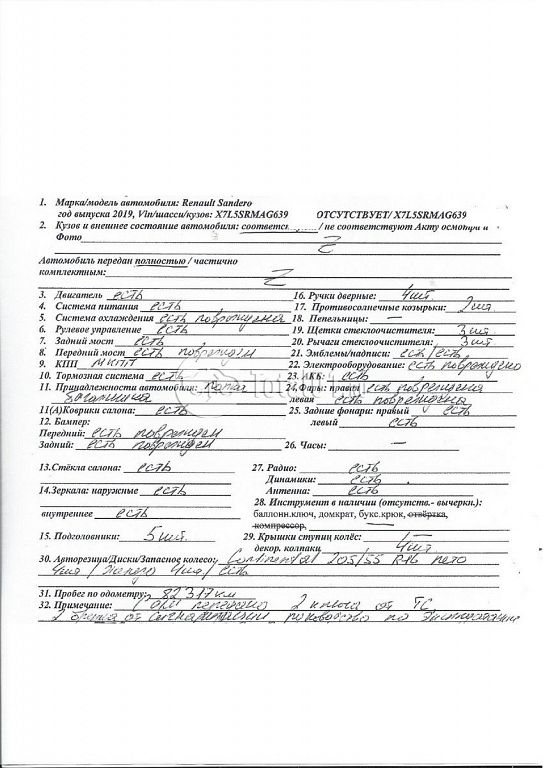 1. Марка/модель автомобиля: Renault Sandero
год выпуска 2019, Vin/шасси/кузов: X7L5SRMAG639 ОТСУТСТВУЕТ/ X7L5SRMAG639
2. Кузов и внешнее состояние автомобиля: соответс / не соответствуют Акту осмотра и
Фото
Автомобиль передан полностью / частично
комплектным:
3. Двигатель есть
4. Система питания есть
5. Система охлаждения есть повреждения
6. Рулевое управление есть
7. Задний мост есть
8. Передний мост есть поврежден
9. КПП МКПП
10. Тормозная система есть
11. Принадлежности автомобиля:
11(А)Коврики салона: есть
12. Бампер:
Передний: есть поврежден
Задний: есть поврежден
13.Стёкла салона: есть
14.Зеркала: наружные есть
внутреннее есть
15. Подголовники: 5 шт.
16. Ручки дверные: 4 шт.
17. Противосолнечные козырьки: 2 шт
18. Пепельницы: —
19. Щетки стеклоочистителя: 3 шт.
20. Рычаги стеклоочистителя: 3 шт.
21. Эмблемы/надписи: есть/есть
22. Электрооборудование: есть повреждено
23. АКБ: есть
24.Фары: правая есть повреждена
левая есть повреждена
25. Задние фонари: правый есть
левый есть
26. Часы: —
27. Радио: есть
Динамики: есть
Антенна: есть
28. Инструмент в наличии (отсутств.- вычеркн.):
баллонн.ключ, домкрат, букс.крюк, отвёртка,
компрессор,
29. Крышки ступиц колёс: —
декор. колпаки 4 шт
30. Авторезина/Диски/Запасное колесо: Continental 205/55 R16 лето
4 шт / Железо 4 шт / есть
31. Пробег по одометру: 82317 км
32. Примечание: передано 2 ключа от ТС
2 от сигнализации руководство по эксплуатации